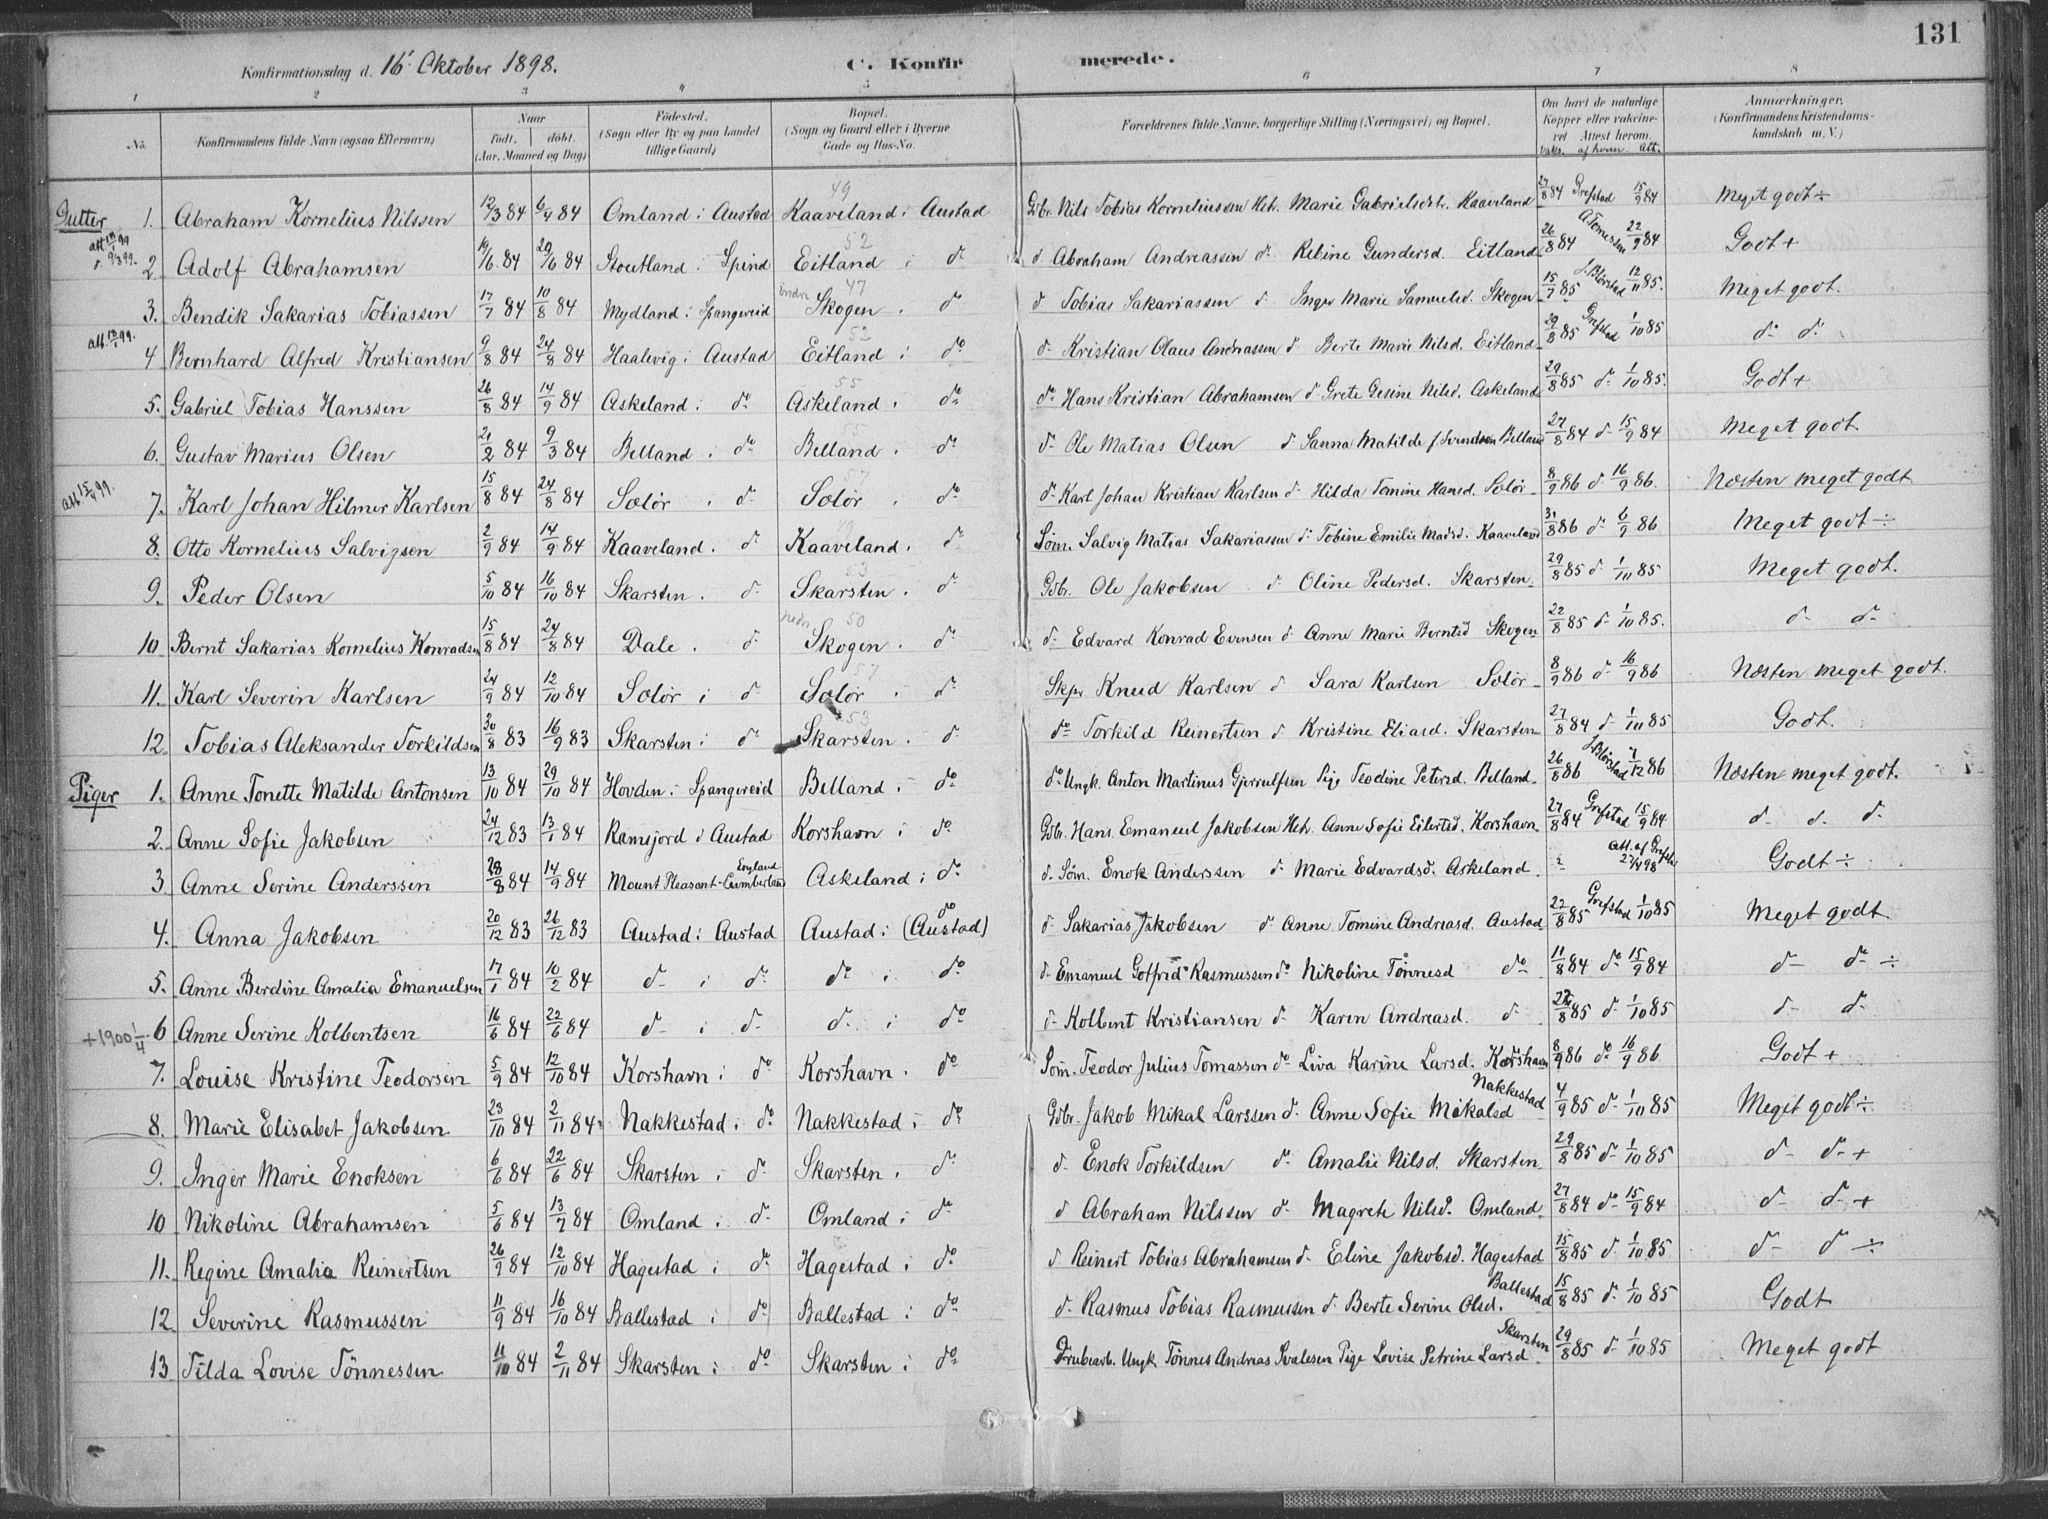 131
Konfirmationsdag d. 16' Oktober 1898. C. Konfirmerede.
1 2 3 4 5 6 7 8
No. Konfirmandens fulde Navn (ogsaa Efternavn) Naar födt. döbt. (Aar, Maaned og Dag) Födested. (Sogn eller By og paa Landet tillige Gaard) Bopæl. (Sogn og Gaard eller i Byerne Gade og Hus-No. Forældrenes fulde Navne, borgerlige Stilling (Næringsvei) og Bopæl. Om havt de naturlige Kopper eller vaccineret Attest herom. vaks. af hvem att. Anmærkninger. (Konfirmandens Kristendomskundskab m. V.)
Gutter 1. Abraham Kornelius Nilssen 12/3 84 6/4 84 Omland i Austad 49 Kaaveland i Austad Gbr. Nils Tobias Korneliussen Hst. Marie Gabrielsdtr. Kaaveland 27/8 84 Grefstad 15/9 84 Meget godt ÷
att 13/1 99 d. 9/3 99. 2. Adolf Abrahamsen 19/6 84 29/6 84 Stoutland i Spind 52 Eitland i do d. Abraham Andreassen do Rebine Gundersd. Eitland 26/8 84 A. Tomessen 22/9 84 Godt +
3. Bendik Sakarias Tobiassen 17/7 84 10/8 84 Mydland i Spangereid indre 47 Skogen . do d. Tobias Sakariassen d. Inger Marie Samuelsd. Skogen 15/7 85 J. Blörstad 12/11 85. Meget godt.
att. 13/1 99. 4 Bernhard Alfred Kristiansen 9/8 84 24/8 84 Haalvig i Austad 52 Eitland i do d. Kristian Olaus Andreassen d. Berte Marie Nilsd. Eitland 29/8 85 Grefstad 1/10 85 do do
5. Gabriel Tobias Hanssen 26/8 84 14/9 84 Askeland i do 55 Askeland . do do Hans Kristian Abrahamsen d. Grete Gesine Nilsd. Askeland 29/8 85 do 1/10 85. Godt +
6. Gustav Marius Olsen 21/2 84 9/3 84 Belland i do 55 Belland . do d. Ole Matias Olsen d. Sanna Matilde f. Svendsen Belland 27/8 84 d. 15/9 84 Meget godt.
att 15/4 99. 7. Karl Johan Hilmer Karlsen 15/8 84 24/8 84 Sælör i d. 57 Sælör . do d. Karl Johan Kristian Karlsen d. Hilda Tomine Hansd. Sælör 8/9 86 d. 16/9 86. Næsten meget godt
8. Otto Kornelius Salvigsen 2/9 84 14/9 84 Kaaveland . d. 49 Kaaveland . do Söm. Salvig Matias Sakariassen d. Tobine Emilie Madsd. Kaaveland 31/8 86 do 6/9 86 Meget godt ÷
9. Peder Olsen 5/10 84 16/10 84 Skarsten . do 53 Skarsten . do Gbr. Ole Jakobsen d. Oline Pedersd. Skarsten 29/8 85 d. 1/10 85 Meget godt.
10 Bernt Sakarias Kornelius Konradsen 15/8 84 24/8 84 Dale . d. nedre 50 Skogen . do d. Edvard Konrad Evensen d. Anne Marie Berntsd Skogen 22/8 85 d. 1/10 85. d. d.
11. Karl Severin Karlsen 24/9 84 12/10 84 Sælör i d. 57 Sælör . do Skpr Knud Karlsen d. Sara Karlsen Sælör 8/9 86 do 16/9 86 Næsten meget godt.
12. Tobias Aleksander Torkildsen 30/8 83 16/9 83 Skarsten i do 53 Skarsten . d. do Torkild Reinertsen d. Kristine Eliasd. Skarsten 27/8 84 d. 1/10 85 Godt.
Piger 1. Anne Tonette Matilde Antonsen 13/10 84 29/10 84 Hovden i Spangereid Belland i do do Ungk. Anton Martinus Gjerrulfsen Pige Teodine Petersd. Belland 26/8 86 J. Blörstad 7/12 86 Næsten meget godt.
2. Anne Sofie Jakobsen 24/12 83 13/1 84 Ramsjord i Austad Korshavn i do Gbr. Hans Emanuel Jakobsen Hst. Anne Sofie Eilertsd. Korshavn 27/8 84 Grefstad 15/9 84 d. d. d.
3. Anne Serine Anderssen 28/8 84 14/9 84 Mount Pleasant-Cumberland England Askeland i do d. Söm. Enok Anderssen d. Marie Edvardsd. Askeland att. af Grefstad Godt ÷
4. Anna Jakobsen 20/12 83 26/12 83 Austad i Austad Austad i do (Austad) d. Sakarias Jakobsen d. Anne Tomine Andreasd. Austad 22/8 85 Grefstad 1/10 85 Meget godt
5. Anne Berdine Amalia Emanuelsen 17/1 84 10/2 84 d. i do do i do d. Emanuel Gotfrid Rasmussen do Nikoline Tönnesd do 11/8 84 do 15/9 84 d. do ÷
+1900 1/4 6 Anne Serine Kolbentsen 16/6 84 22/6 84 d. i d. d. i do d. Kolbent Kristiansen d. Karen Andreasd. d. 22/8 85 do 1/10 85 d. d.
7. Louise Kristine Teodorsen 5/9 84 12/10 84 Korshavn i do Korshavn . do Söm. Teodor Julius Tomassen do Liva Karine Larsd. Korshavn 8/9 86 do 16/9 86 Godt +
8. Marie Elisabet Jakobsen 23/10 84 2/11 84 Nakkestad i do Nakkestad i do Gbr. Jakob Mikal Larssen d. Anne Sofie Mikalsd Nakkestad 4/9 85 d. 1/10 85 Meget godt ÷
9. Inger Marie Enoksen 6/6 84 22/6 84 Skarsten i do Skarsten i do d. Enok Torkildsen do Amalie Nilsd. Skarsten 29/8 85 d. 1/10 85 d. do +
10 Nikoline Abrahamsen 5/6 84 13/7 84 Omland i do Omland i do d. Abraham Nilssen do Magrete Nilsd. Omland 27/8 84 do 15/9 84 d. do +
11. Regine Amalia Reinertsen 26/9 84 12/10 84 Hagestad i do Hagestad i do d. Reinert Tobias Abrahamsen d. Eline Jakobsd. Hagestad 15/8 85 d. 1/10 85 d. d. ÷
12. Severine Rasmussen 11/9 84 16/10 84 Ballestad i do Ballestad i do d. Rasmus Tobias Rasmussen d. Berte Serine Olsd. Ballestad 15/8 85 d. 1/10 85 Godt
13. Tilda Lovise Tönnessen 11/10 84 2/11 84 Skarsten i do Skarsten i do Ungk Tönnes Andreas Svalesen Pige Lovise Petrine Larsd Skarsten 29/8 85 d. 1/10 85 Meget godt